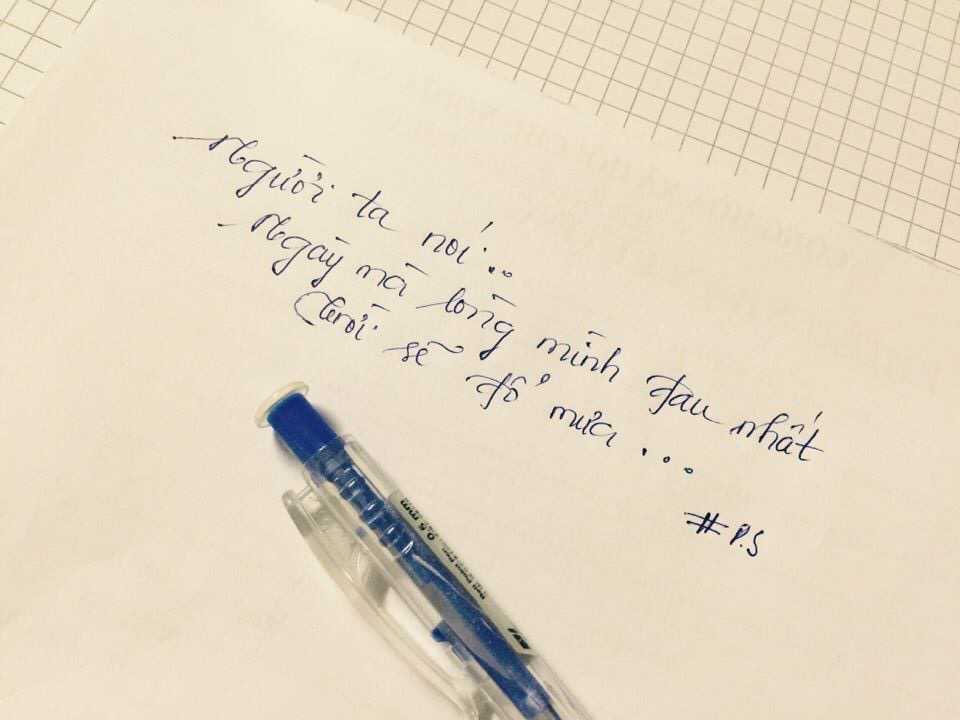 Người ta nói...
Ngày mà lòng mình đau nhất
Trời sẽ đổ mưa...
# P.S
0.5 mm